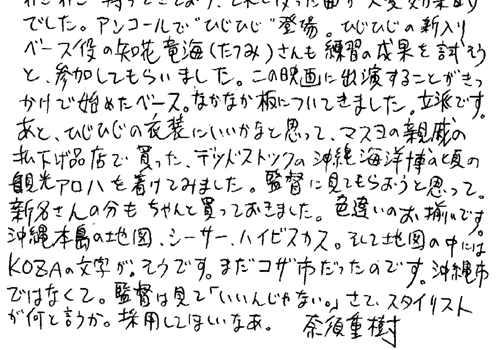 でした。アンコールで"ひじひじ"登場。ひじひじの新入り
ベース役の知花竜海(たつみ)さんも練習の成果を試そう
と、参加してもらいました。この映画に出演することがきっ
かけで始めたベース。なかなか板についてきました。立派です。
あと、ひじひじの衣装にいいかなと思って、マスヨの親戚の
払下げ品店で買った、デッドストックの沖縄海洋博の頃の
観光アロハを着けてみました。監督に見てもらおうと思って。
新名さんの分もちゃんと買っておきました。色違いのお揃いです。
沖縄本島の地図、シーサー、ハイビスカス。そして地図の中には
KOZAの文字が。そうです。まだコザ市だったのです。沖縄市
ではなくて。監督は見て「いいんじゃない。」さて、スタイリスト
が何と言うか。採用してほしいなあ。 奈須重樹